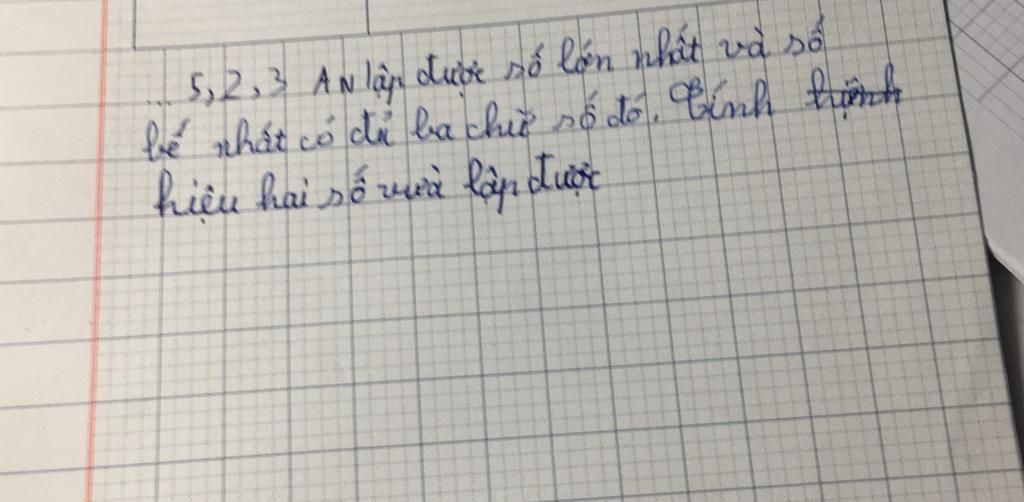 ... 5, 2, 3 AN lập được số lớn nhất và số
bé nhất có đủ ba chữ số đó. Tính
hiệu hai số vừa lập được